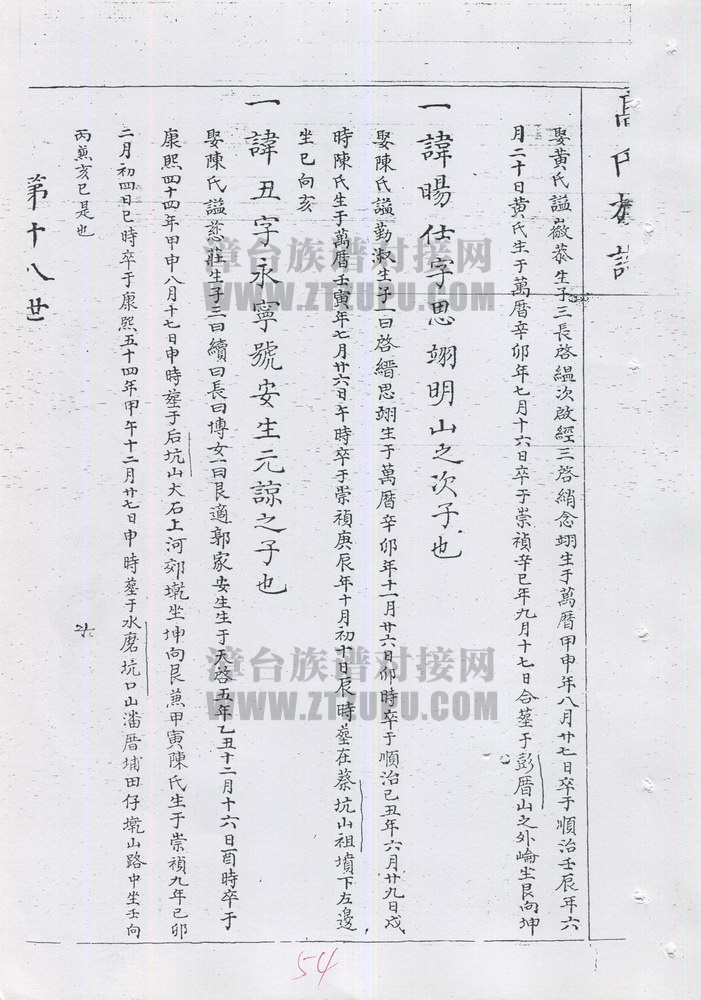 高氏族譜
娶黃氏謚嶶恭生子三長啓縕次啟經三啓綃念翊生于萬曆甲申年八月廿七日卒于順治壬辰年六
月二十日黄氏生于萬曆辛卯年七月十六日卒于崇禎辛巳年九月十七日合塟于彭厝山之外崙坐艮向坤
一諱暘仕字思翊明山之次子也
娶陳氏謚勤淑生子一曰啓縉思翊生于萬曆辛卯年十一月廿六日卯時卒于順治己丑年六月廿九日戍
時陳氏生于萬曆壬寅年七月廿六日午時卒于崇禎庚辰年十月初十日辰時塟在蔡坑山祖墳下左邊
坐巳向亥
一諱丑字永寧號安生元諒之子也
娶陳氏謚慈莊生子三曰續曰長曰博女一曰艮適郭家安生生于天啓五年乙丑十二月十六日酉時卒于
康熙四十四年甲申八月十七日申時塟于后坑山大石上河郊墘坐坤向艮兼甲寅陳氏生于崇禎九年己卯
二月初四日巳時卒于康熙五十四年甲午十二月廿七日申時塟于水磨坑口山潘厝埔田仔墘山路中坐壬向
丙兼亥巳是也
第十八世
54
漳台族谱对接网
WWW.ZTZUPU.COM
漳台族谱对接网
WWW.ZTZUPU.COM